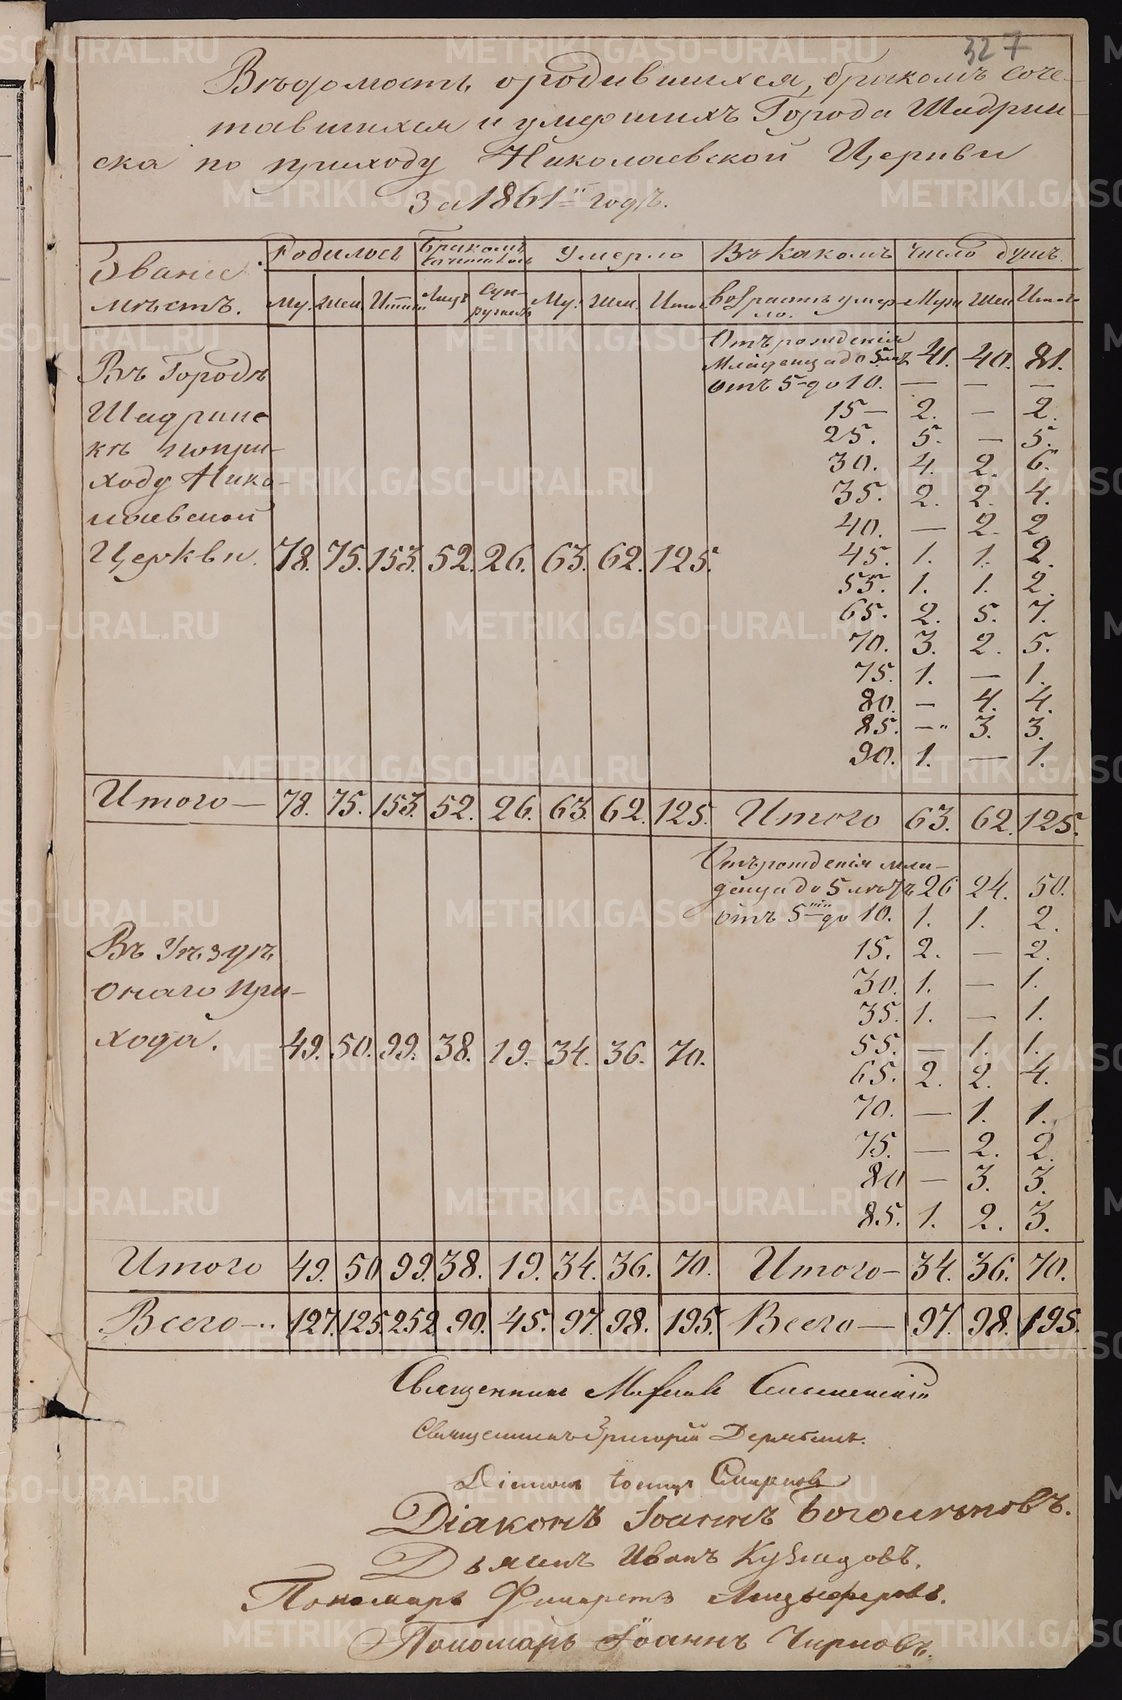 327
Вѣдомость о родившихся, бракомъ соче-
тавшихся и умершихъ Города Шадрин-
ска по приходу Николаевской Церкви
За 1861й годъ.
Званіе мѣстъ. Родилось Бракомъ сочеталось Умерло Въ какомъ возрастѣ умерло. Число душъ.
Му. Жен. Итого Лицъ Супружествъ Му. Жен. Итого Муж. Жен. Итого
Отъ рожденія
Въ Городѣ младенца до 5 лѣтъ 41. 40. 81.
отъ 5 до 10. — — —
Шадринс- 15 — 2. — 2.
кѣ по при- 25. 5. — 5.
ходу Нико- 30. 4. 2. 6.
35. 2. 2. 4.
лаевской 40. — 2. 2.
Церкви. 78. 75. 153. 52. 26. 63. 62. 125. 45. 1. 1. 2.
55. 1. 1. 2.
65. 2. 5. 7.
70. 3. 2. 5.
75. 1. — 1.
80. — 4. 4.
85. — 3. 3.
90. 1. — 1.
Итого — 78. 75. 153. 52. 26. 63. 62. 125. Итого 63. 62. 125.
Отъ рожденія мла-
денца до 5 лѣтъ 26 24. 50.
отъ 5ти до 10. 1. 1. 2.
Въ Уѣздѣ 15. 2. — 2.
онаго При- 30. 1. — 1.
35. 1. — 1.
хода. 49. 50. 99. 38. 19. 34. 36. 70. 55. — 1. 1.
65. 2. 2. 4.
70. — 1. 1.
75. — 2. 2.
80 — 3. 3.
85. 1. 2. 3.
Итого 49. 50 99. 38. 19. 34. 36. 70. Итого — 34. 36. 70.
Всего — 127. 125. 252 90. 45. 97. 98. 195. Всего — 97. 98. 195.
Священникъ
Священникъ Григорій
Діаконъ Смирновъ
Діаконъ Іоаннъ Богомоловъ.
Дьячекъ Иванъ
Пономарь Филаретъ
Пономарь Іоаннъ Чирковъ.
METRIKI.GASO-URAL.RU